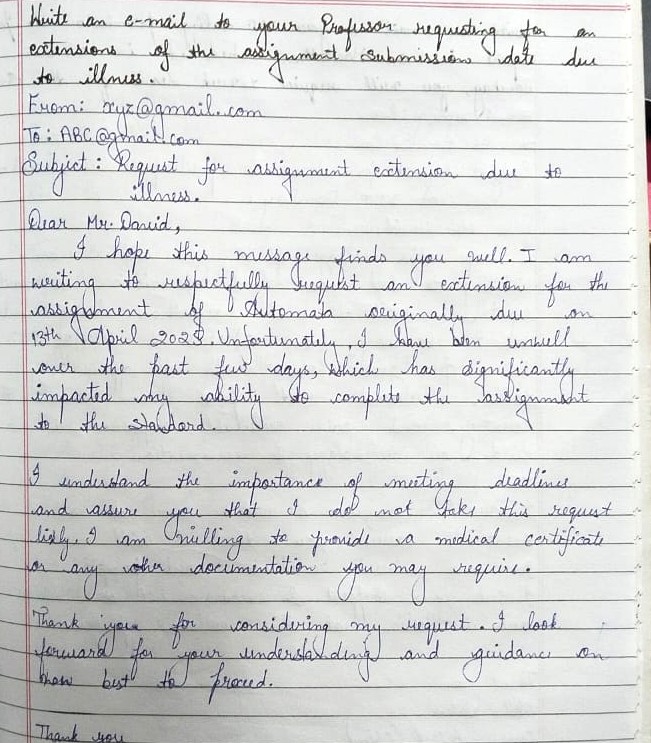 Write an e-mail to your Professor requesting for an
extensions of the assignment submission date due
to illness.
From: xyz@gmail.com
To: ABC@gmail.com
Subject: Request for assignment extension due to
illness.
Dear Mr. David,
I hope this message finds you well. I am
writing to respectfully request an extension for the
assignment of Automata originally due on
13th April 2025. Unfortunately, I have been unwell
over the past few days, which has significantly
impacted my ability to complete the assignment
to the standard.
I understand the importance of meeting deadlines
and assure you that I do not take this request
I am willing to provide a medical certificate
or any other documentation you may require.
Thank you for considering my request. I look
forward for your understanding and guidance on
how best to proceed.
Thank you